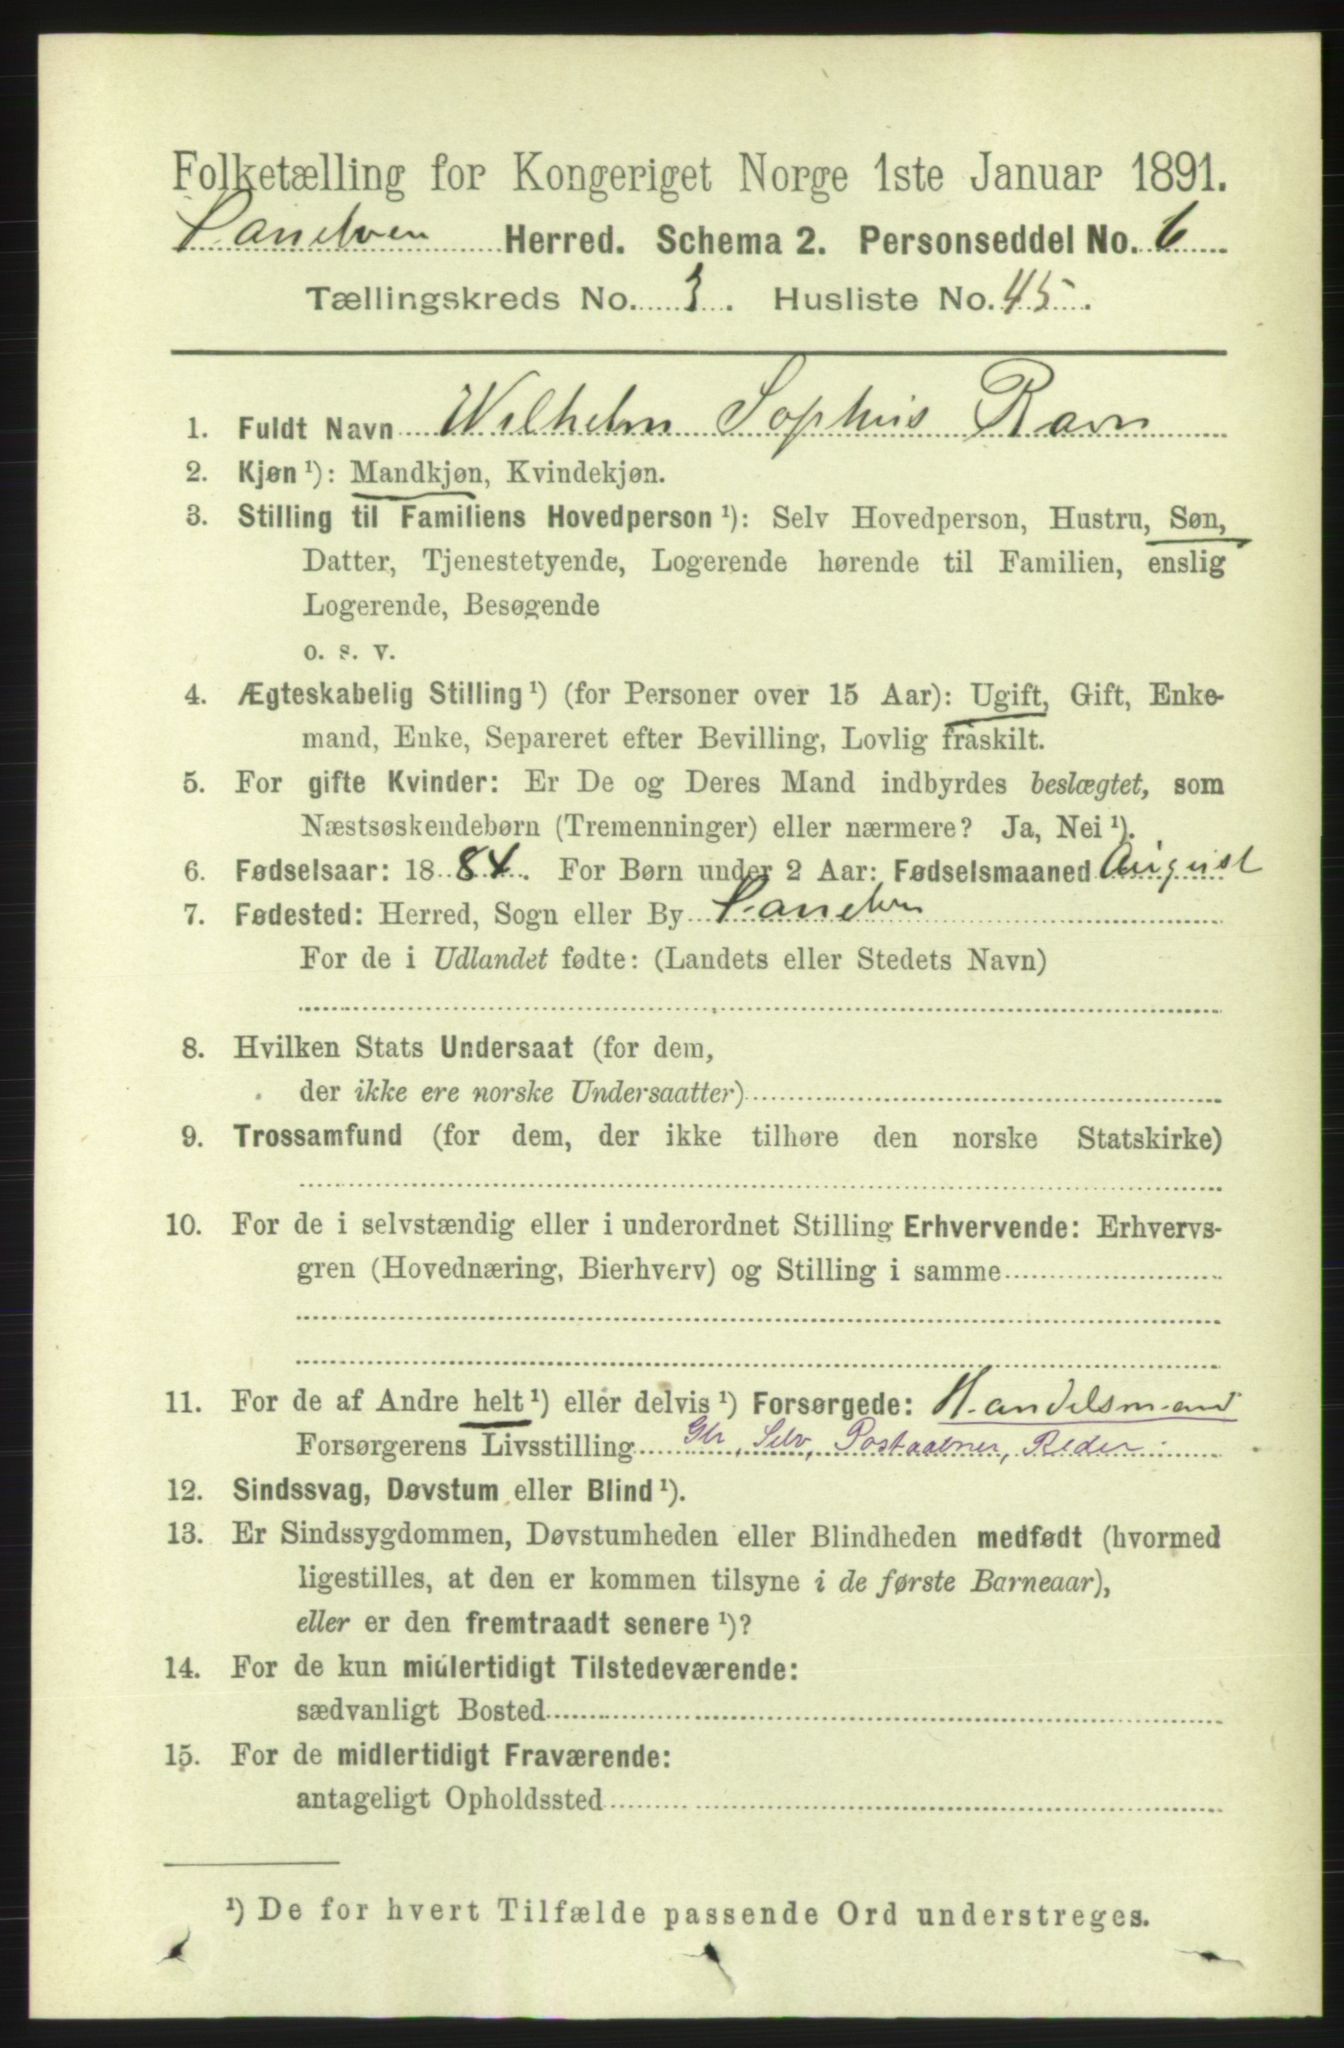 Folketælling for Kongeriget Norge 1ste Januar 1891.
Sandven Herred. Schema 2. Personseddel No. 6
Tællingskreds No. 3. Husliste No. 45.
1. Fuldt Navn Wilhelm Sophus Ravn
2. Kjøn ¹): Mandkjøn, Kvindekjøn.
3. Stilling til Familiens Hovedperson ¹): Selv Hovedperson, Hustru, Søn,
Datter, Tjenestetyende, Logerende hørende til Familien, enslig
Logerende, Besøgende
o. s. v.
4. Ægteskabelig Stilling ¹) (for Personer over 15 Aar): Ugift, Gift, Enke-
mand, Enke, Separeret efter Bevilling, Lovlig fraskilt.
5. For gifte Kvinder: Er De og Deres Mand indbyrdes beslægtet, som
Næstsøskendebørn (Tremenninger) eller nærmere? Ja, Nei ¹).
6. Fødselsaar: 1884. For Børn under 2 Aar: Fødselsmaaned August
7. Fødested: Herred, Sogn eller By
For de i Udlandet fødte: (Landets eller Stedets Navn)
8. Hvilken Stats Undersaat (for dem,
der ikke ere norske Undersaatter)
9. Trossamfund (for dem, der ikke tilhøre den norske Statskirke)
10. For de i selvstændig eller i underordnet Stilling Erhvervende: Erhvervs-
gren (Hovednæring, Bierhverv) og Stilling i samme
11. For de af Andre helt ¹) eller delvis ¹) Forsørgede: Handelsmand
Forsørgerens Livsstilling Gbr, Selv, Postaabner, Reder
12. Sindssvag, Døvstum eller Blind ¹).
13. Er Sindssygdommen, Døvstumheden eller Blindheden medfødt (hvormed
ligestilles, at den er kommen tilsyne i de første Barneaar),
eller er den fremtraadt senere ¹)?
14. For de kun midlertidigt Tilstedeværende:
sædvanligt Bosted
15. For de midlertidigt Fraværende:
antageligt Opholdssted
¹) De for hvert Tilfælde passende Ord understreges.